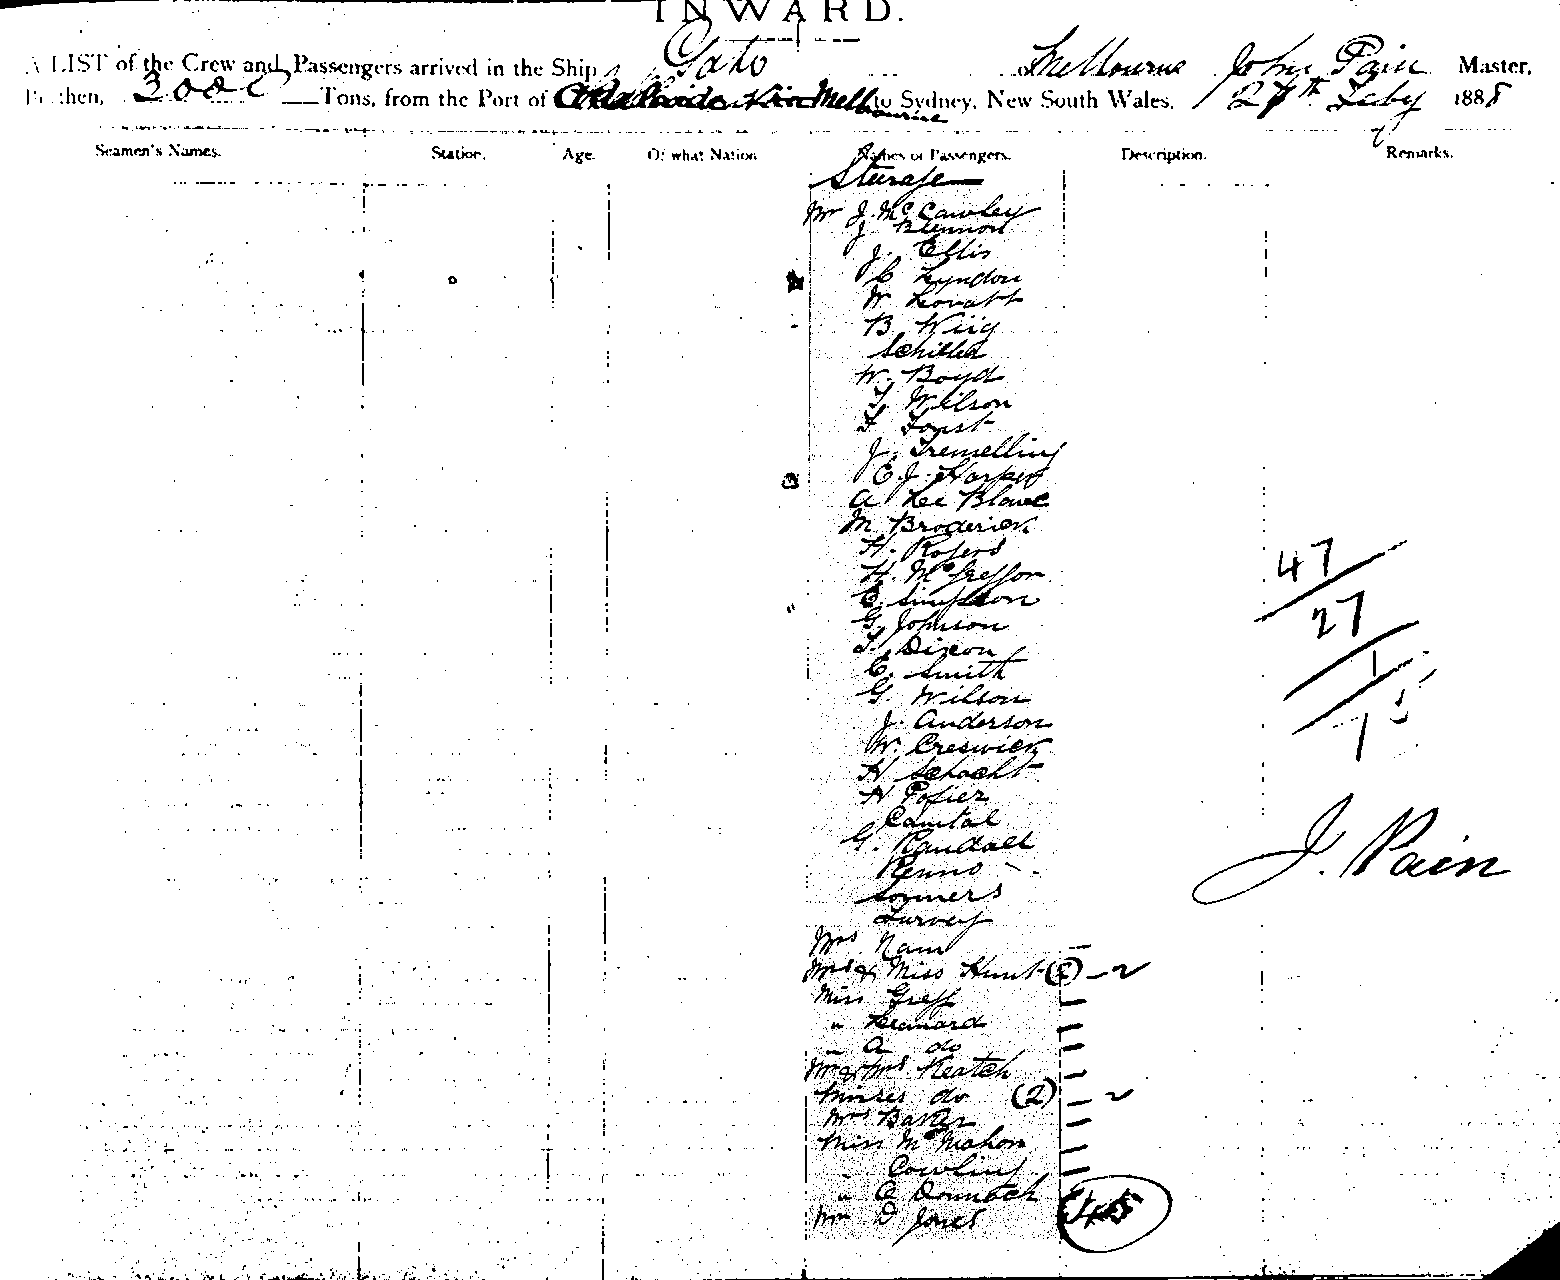 INWARD.
A LIST of the Crew and Passengers arrived in the Ship Gabo of Melbourne John Pain Master,
Burthen, 3000 Tons, from the Port of Melbourne to Sydney, New South Wales, 27th Feby 1888
Seamen's Names. Station. Age. Of what Nation Names of Passengers. Description. Remarks.
Sturage
Mr J. McCawley
J
J. Ellis
C Lyndon
W Lovatt
B Wiig
W. Boyd
T Wilson
J. Tremelling
E. J. Harper
A Lee Blanc
M Broderick
H. Rogers
H. McGregor
E. Simpson
G. Johnson
T. Dixon
C. Smith
G Wilson
J. Anderson
W. Creswick
H Schacht
H
G. Randall
Renno
Somers
Mrs
Mrs & Miss Hunt (2) - 2
Miss Gregg
" Lennard
" A do
Mr & Mrs Keatch
Misses do (2) 2
Mrs Baker
Miss McMahon
Cowling
" C
Mr D Jones 45
47
27
1
15
J. Pain